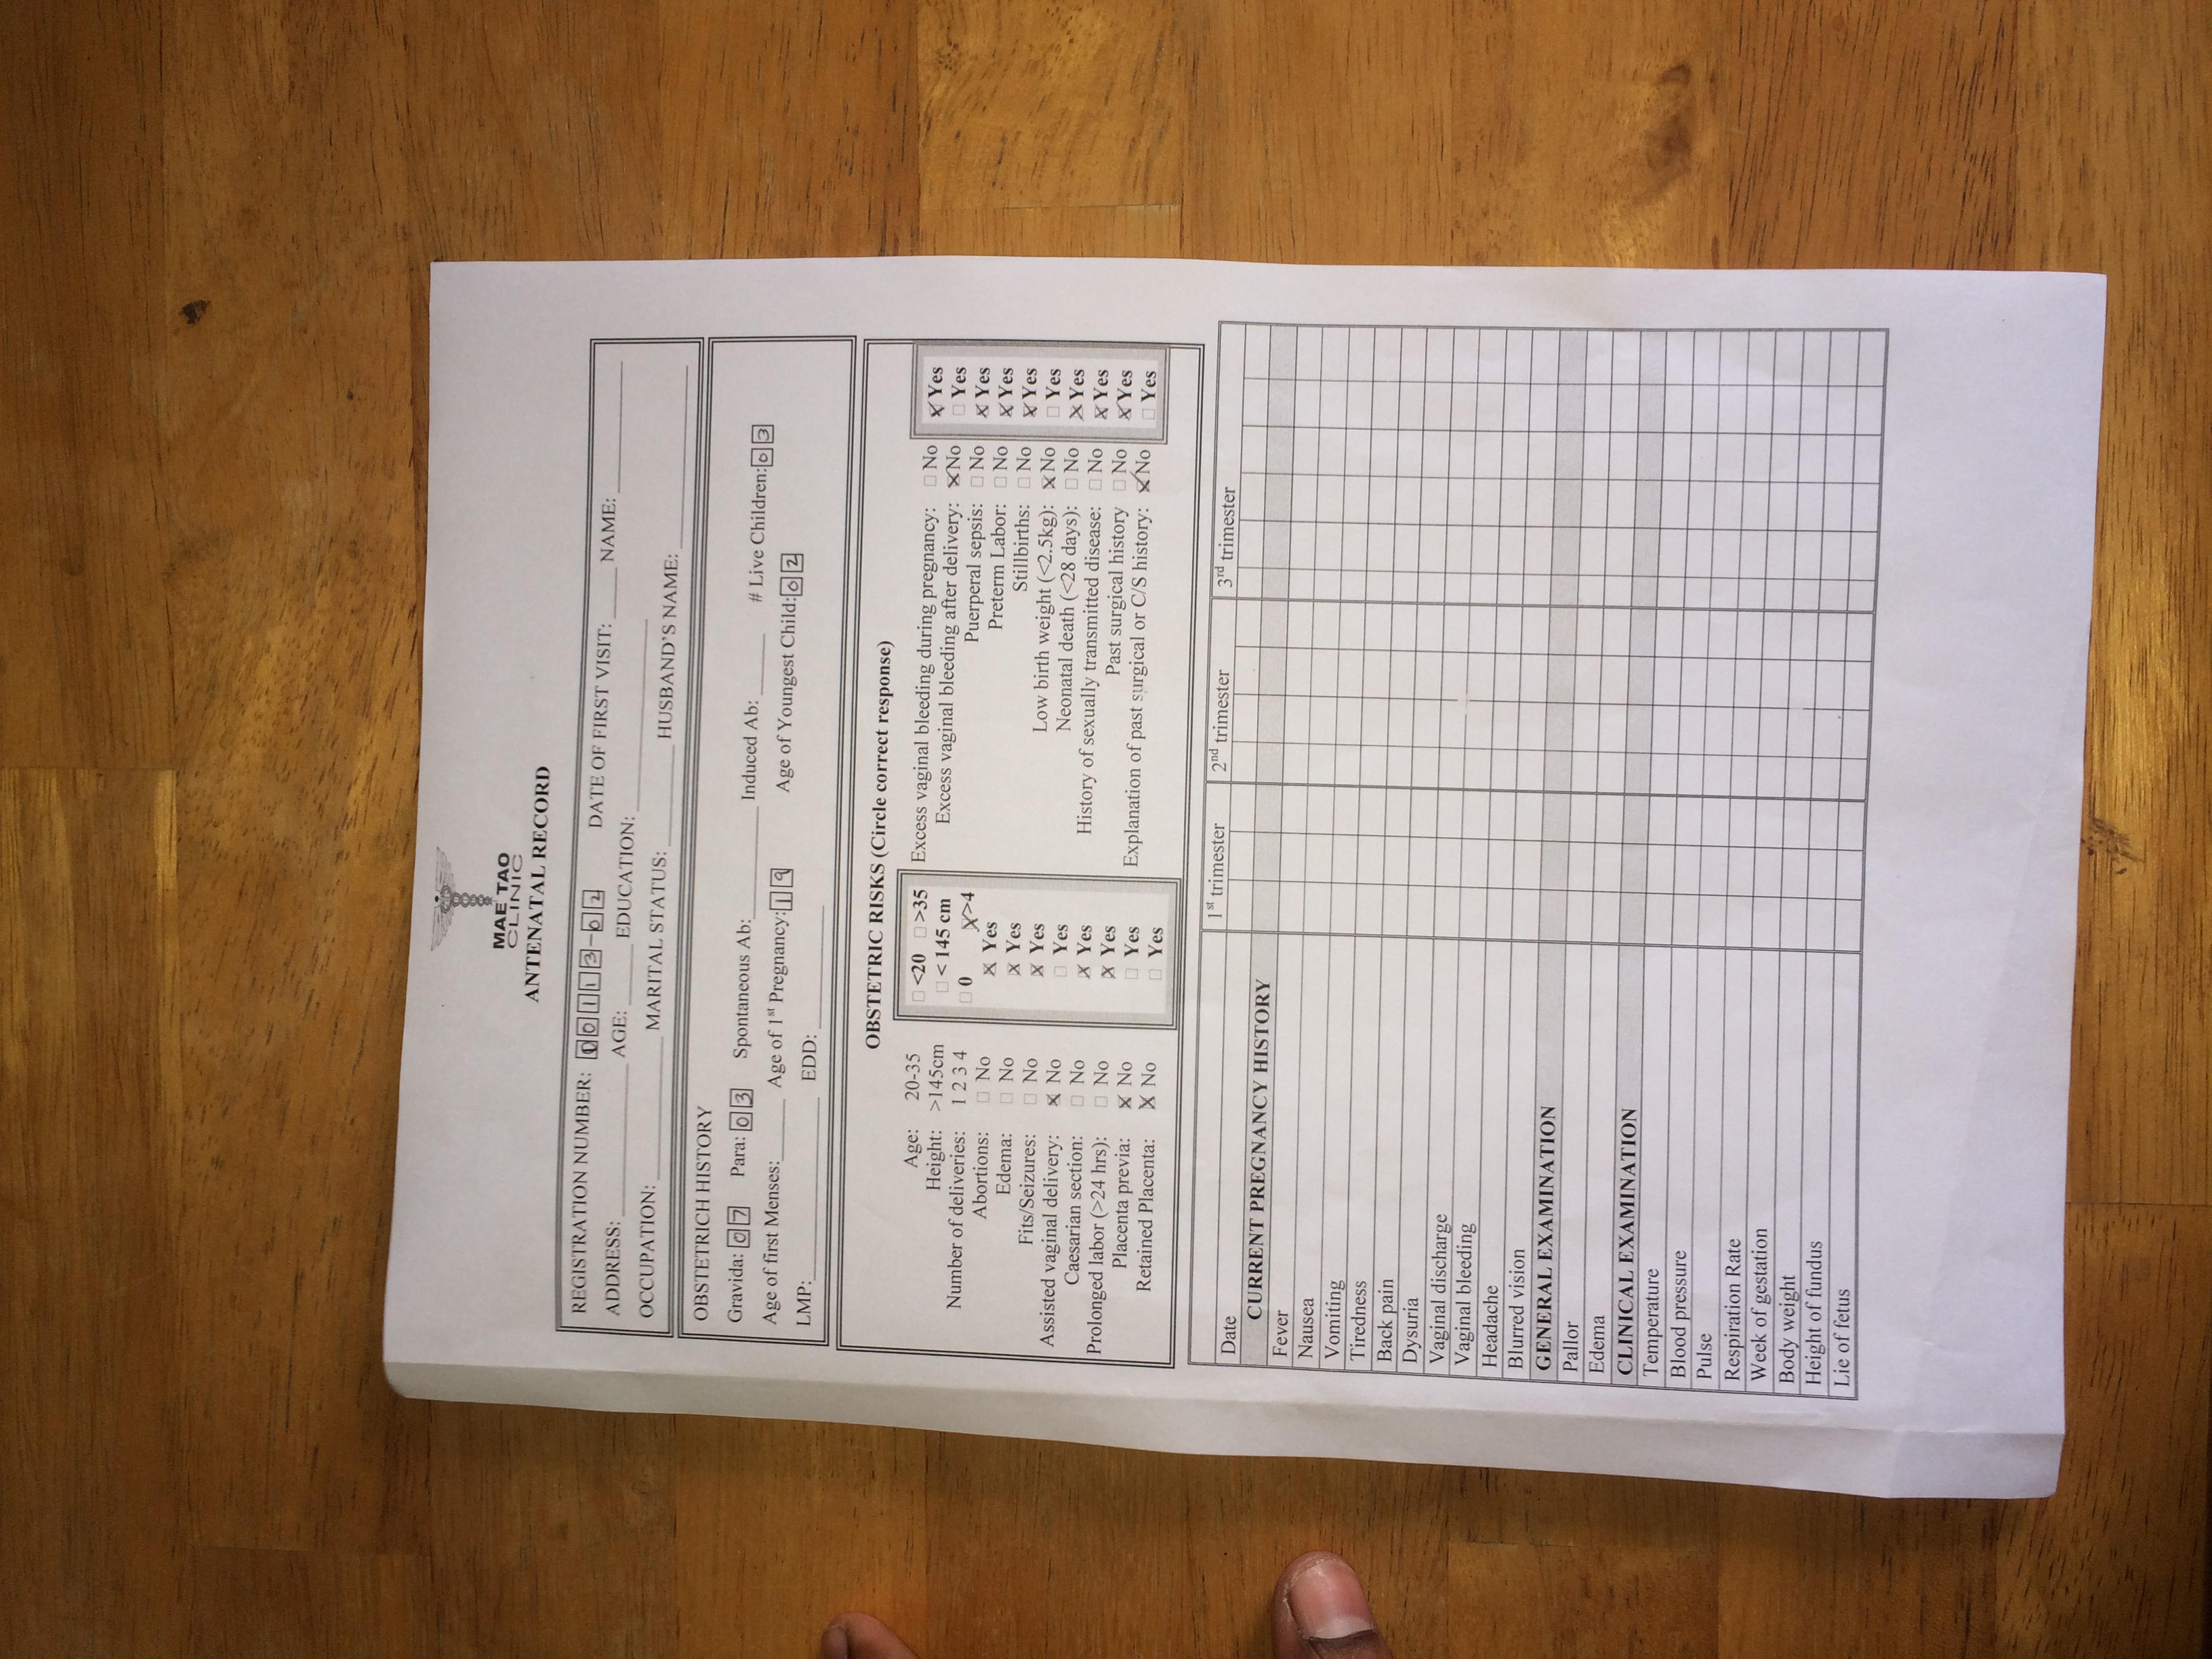 MAE TAO
CLINIC
ANTENATAL RECORD
REGISTRATION NUMBER: 00113-02 DATE OF FIRST VISIT: _____ NAME: _____
ADDRESS: _____ AGE: _____ EDUCATION: _____
OCCUPATION: _____ MARITAL STATUS: _____ HUSBAND'S NAME: _____
OBSTETRICH HISTORY
Gravida: 07 Para: 03 Spontaneous Ab: _____ Induced Ab: _____ # Live Children: 03
Age of first Menses: _____ Age of 1st Pregnancy: 19 Age of Youngest Child: 02
LMP: _____ EDD: _____
OBSTETRIC RISKS (Circle correct response)
Age: 20-35 ☐ <20 ☐ >35
Height: >145cm ☐ < 145 cm
Number of deliveries: 1 2 3 4 ☐ 0 ☒ >4
Abortions: ☐ No ☒ Yes
Edema: ☐ No ☒ Yes
Fits/Seizures: ☐ No ☒ Yes
Assisted vaginal delivery: ☒ No ☐ Yes
Caesarian section: ☐ No ☒ Yes
Prolonged labor (>24 hrs): ☐ No ☒ Yes
Placenta previa: ☒ No ☐ Yes
Retained Placenta: ☒ No ☐ Yes
Excess vaginal bleeding during pregnancy: ☐ No ☒ Yes
Excess vaginal bleeding after delivery: ☒ No ☐ Yes
Puerperal sepsis: ☐ No ☒ Yes
Preterm Labor: ☐ No ☒ Yes
Stillbirths: ☐ No ☒ Yes
Low birth weight (<2.5kg): ☒ No ☐ Yes
Neonatal death (<28 days): ☐ No ☒ Yes
History of sexually transmitted disease: ☐ No ☒ Yes
Past surgical history ☐ No ☒ Yes
Explanation of past surgical or C/S history: ☒ No ☐ Yes
1st trimester 2nd trimester 3rd trimester
Date
CURRENT PREGNANCY HISTORY
Fever
Nausea
Vomiting
Tiredness
Back pain
Dysuria
Vaginal discharge
Vaginal bleeding
Headache
Blurred vision
GENERAL EXAMINATION
Pallor
Edema
CLINICAL EXAMINATION
Temperature
Blood pressure
Pulse
Respiration Rate
Week of gestation
Body weight
Height of fundus
Lie of fetus